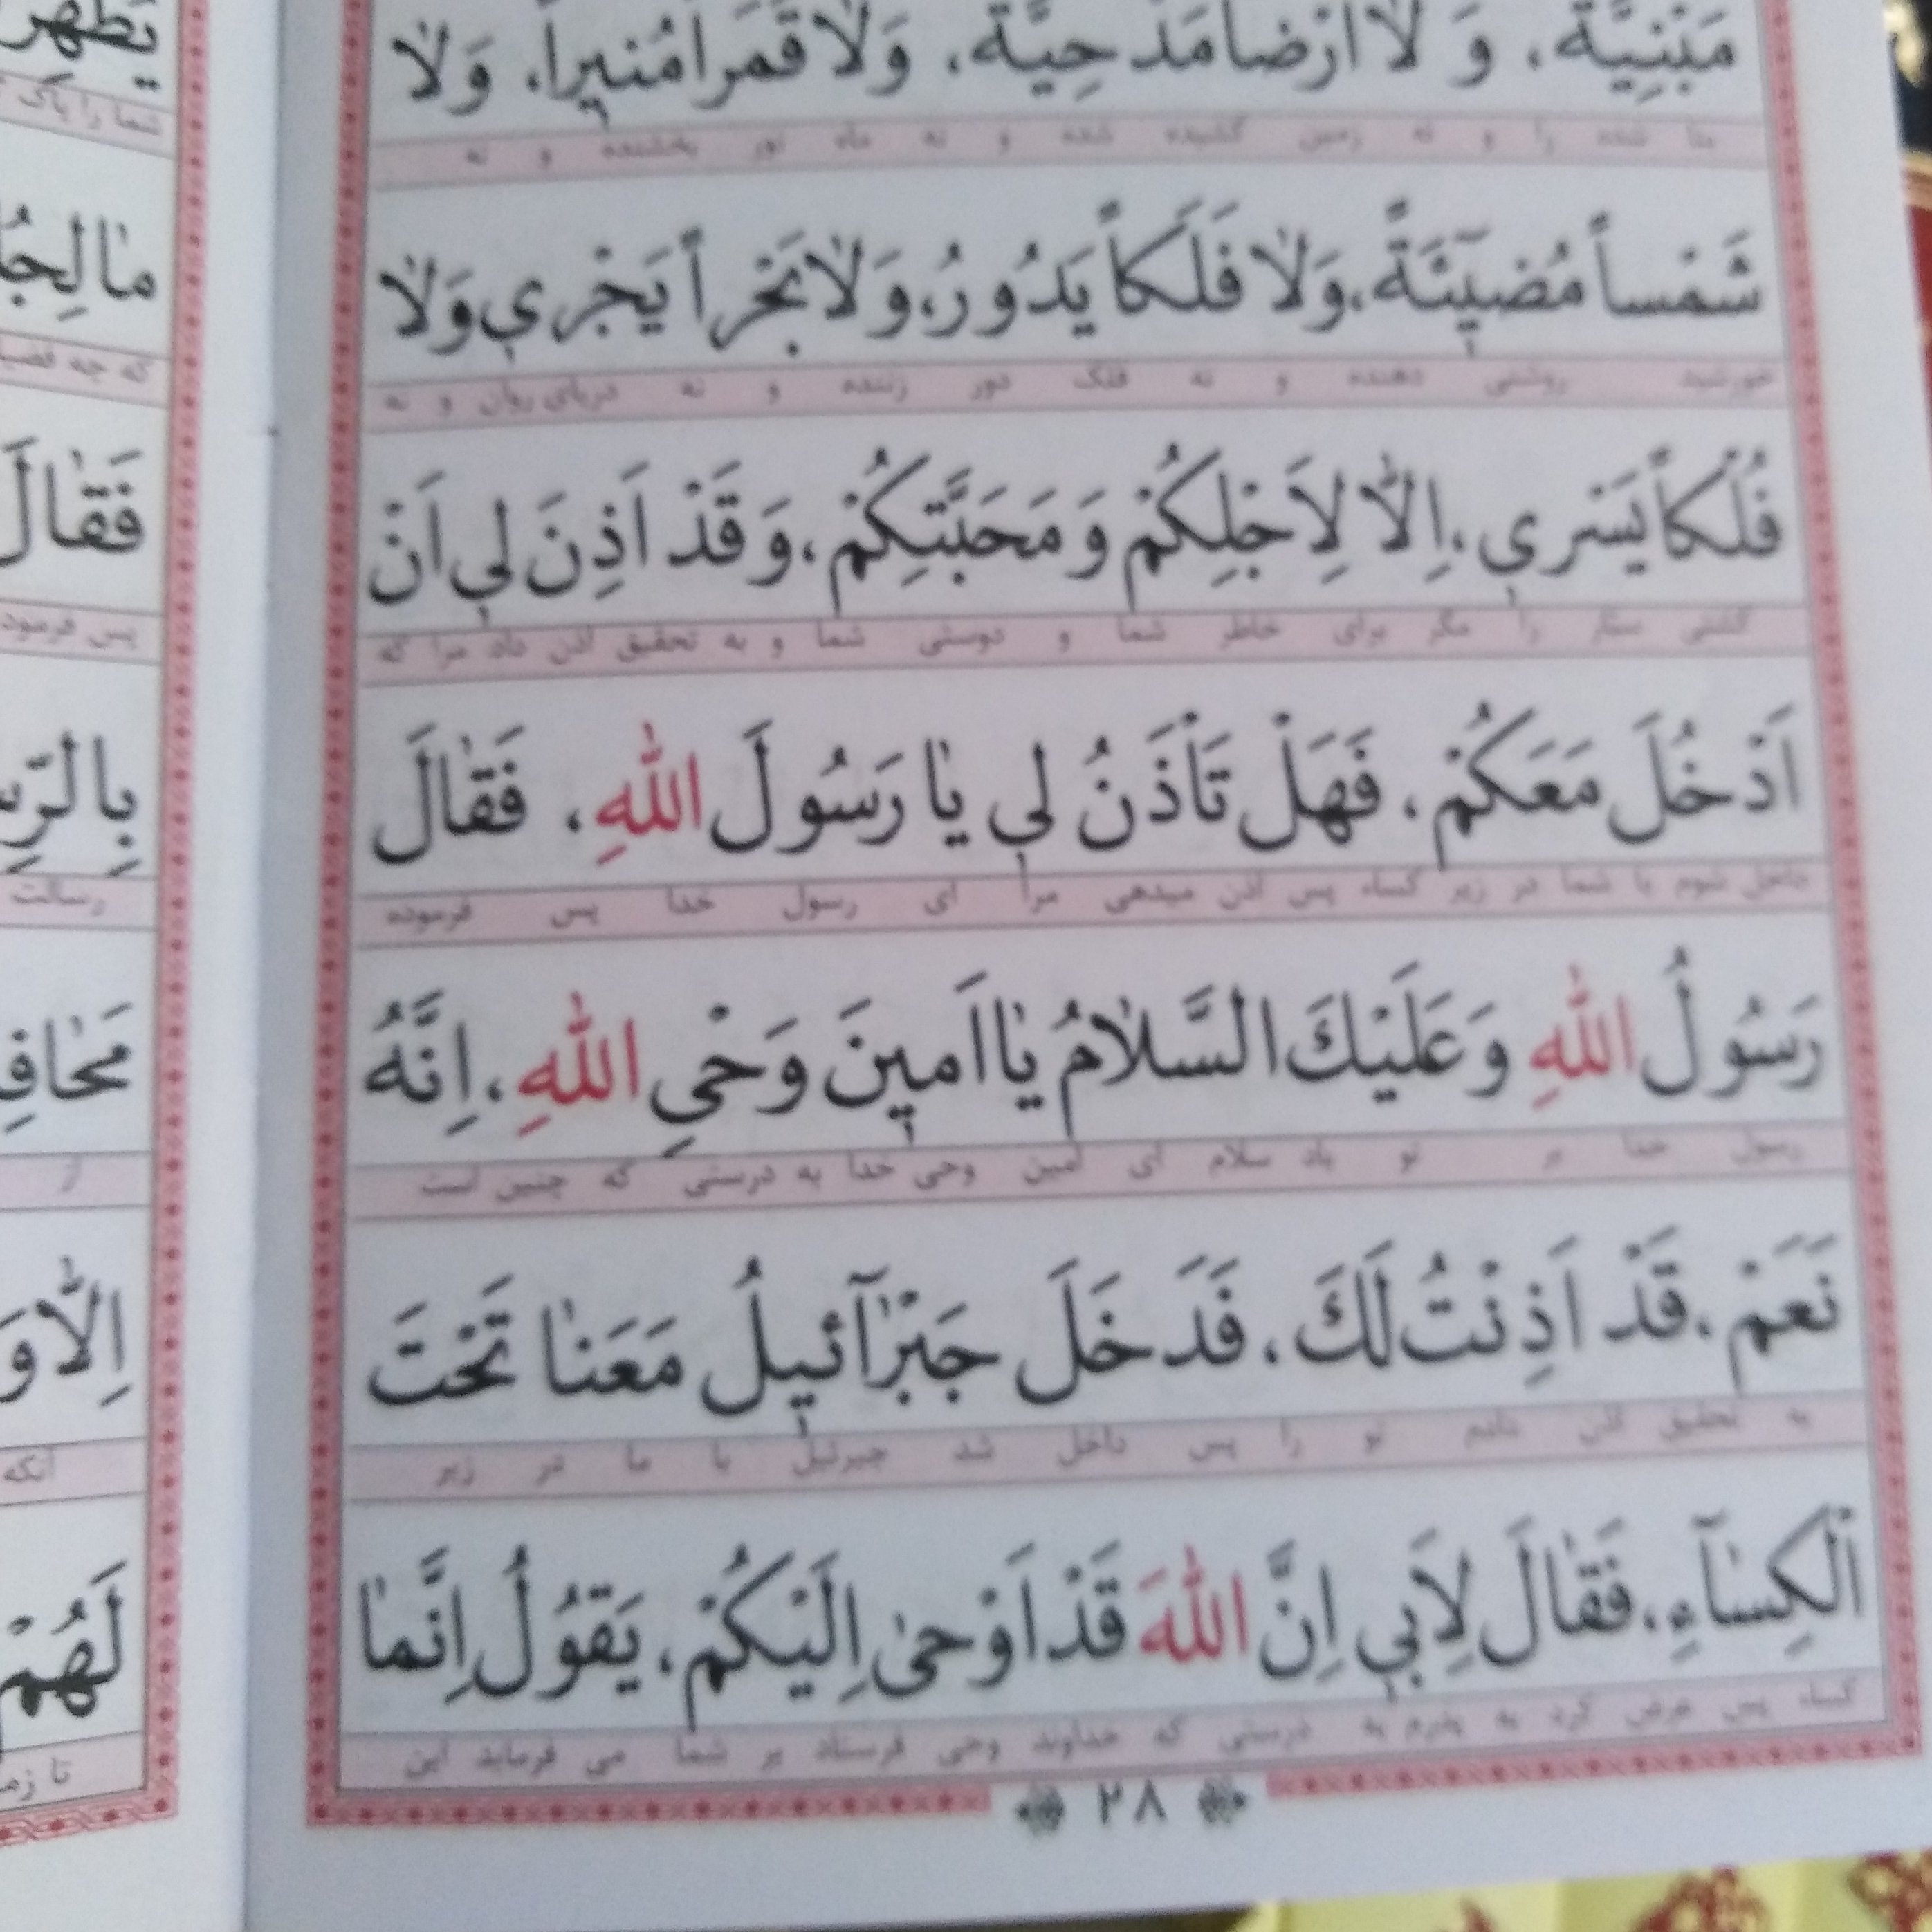 مَبْنِيَّةً، وَ لاٰ اَرْضاً مَدْحِيَّةً، وَلاٰ قَمَراً مُنيراً، وَلاٰ
بنا شده را و نه زمین کشیده شده و نه ماه نور بخشنده و نه
شَمْساً مُضيٓئَةً، وَلاٰ فَلَكاً يَدُورُ، وَلاٰ بَحْراً يَجْري وَلاٰ
خورشید روشنی دهنده و نه فلک دور زننده و نه دریای روان و نه
فُلْكاً يَسْري، اِلاّٰ لِاَجْلِكُمْ وَ مَحَبَّتِكُمْ، وَ قَدْ اَذِنَ لي اَنْ
کشتی ستار را مگر برای خاطر شما و دوستی شما و به تحقیق اذن داد مرا که
اَدْخُلَ مَعَكُمْ، فَهَلْ تَأْذَنُ لي يٰا رَسُولَ اللهِ، فَقٰالَ
داخل شوم با شما در زیر کساء پس اذن میدهی مرا ای رسول خدا پس فرموده
رَسُولُ اللهِ وَ عَلَيْكَ السَّلاٰمُ يٰا اَمينَ وَحْيِ اللهِ، اِنَّهُ
رسول خدا بر تو باد سلام ای امین وحی خدا به درستی که چنین است
نَعَمْ، قَدْ اَذِنْتُ لَكَ، فَدَخَلَ جَبْرٰآئيلُ مَعَنٰا تَحْتَ
به تحقیق اذن دادم تو را پس داخل شد جبرئیل با ما در زیر
الْكِسٰآءِ، فَقٰالَ لِاَبي اِنَّ اللهَ قَدْ اَوْحىٰ اِلَيْكُمْ، يَقُولُ اِنَّمٰا
کساء پس عرض کرد به پدرم به درستی که خداوند وحی فرستاد بر شما می فرماید این
۲۸
شما را پاک
مٰا لِجُ
که چه
فَقٰالَ
پس فرمود
رسالت
از
اِلاّٰ وَ
آنکه
لَهُمْ